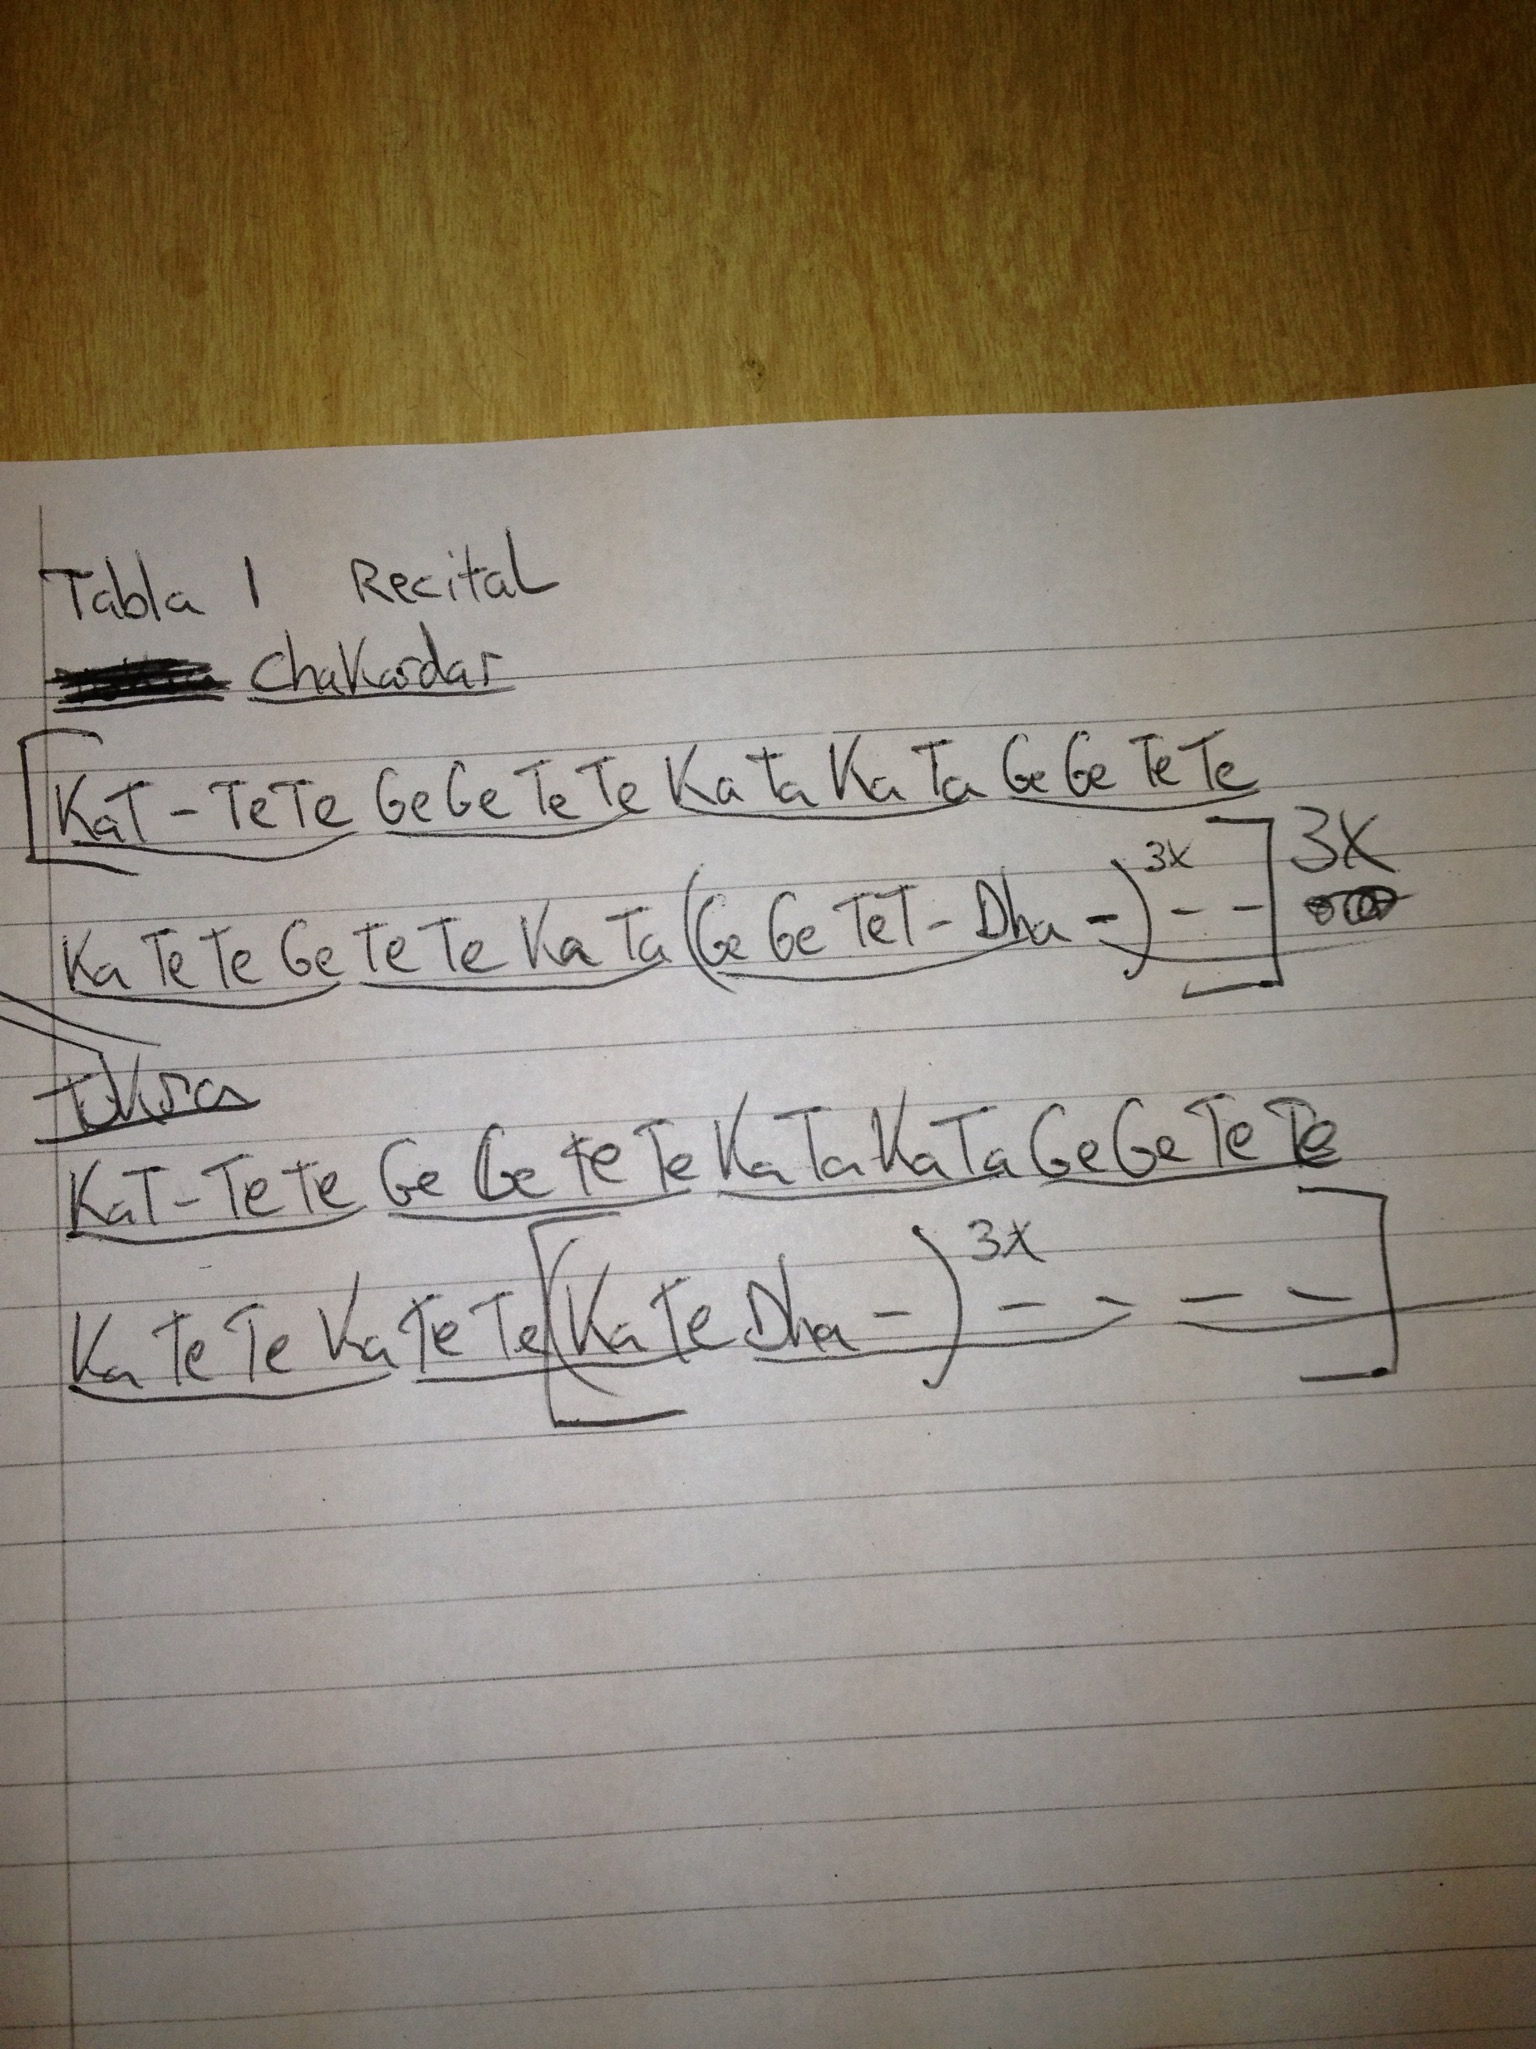 Tabla 1 Recital
Chakardar
[KaT - TeTe GeGe TeTe KaTa KaTa GeGe TeTe
KaTeTeGe TeTe KaTa (GeGe TeT - Dha -) 3x - -] 3x
Tukra
KaT - TeTe GeGe teTe KaTaKaTa GeGe TeTe
KaTeTeKa TeTe [(KaTe Dha -) 3x - - - -]